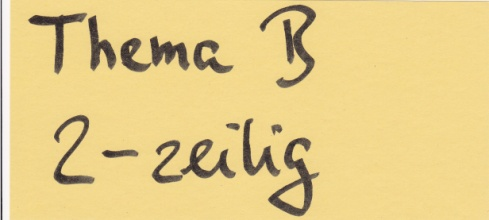 Thema B
2-zeilig